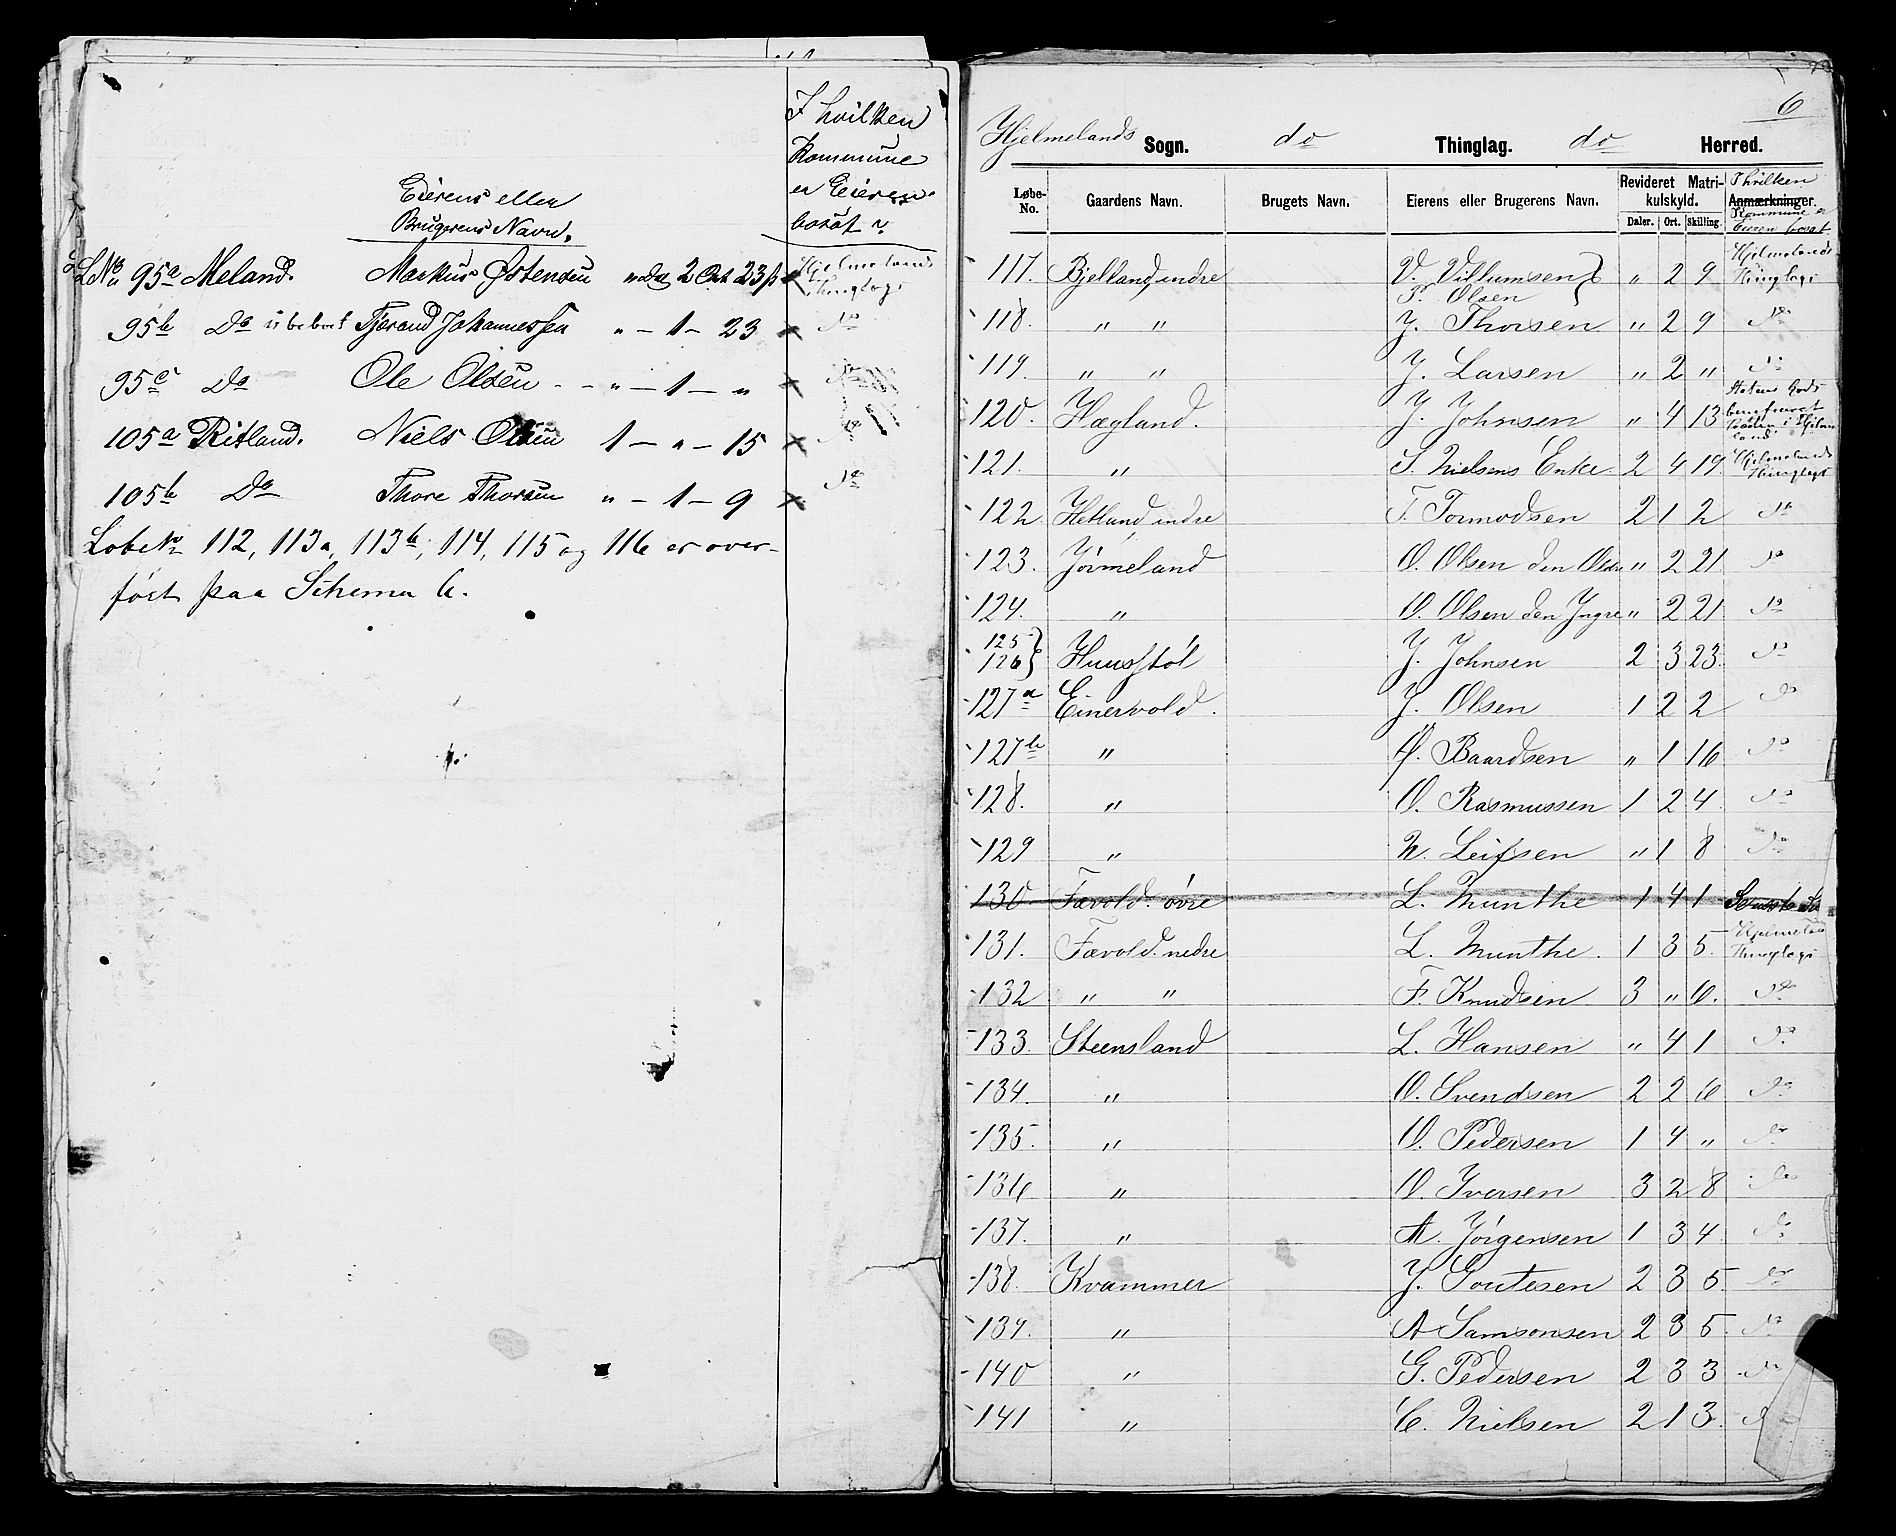 I hvilken
Kommune
er Eieren
bosat?
Eierens eller
Brugerens Navn.
LNo 95a Meland. Markus Østensen " Dal 2 Ort 23 ß Hjelmelands Thinglag
95b Do ubeboet Tjerand Johannessen " - 1 - 23 Do
95c Do Ole Olsen - - " - 1 - " Do
105a Ritland. Niels Olsen 1 - " - 15 Do
105b Do Thore Thorsen " - 1 - 9 Do
Løbe No 112, 113a, 113b, 114, 115 og 116 er over-
ført paa Schema 6.
6
Hjelmelands Sogn. do Thinglag. do Herred.
Løbe-No. Gaardens Navn. Brugets Navn. Eierens eller Brugerens Navn. Revideret Matrikulskyld. Anmærkninger.
I hvilken Kommune er Eieren bosat
Daler. Ort. Skilling.
117. Bjelland, indre V. Villumsen " 2 9 Hjelmelands Thinglag
T. Olsen
118. " " J. Thorsen " 2 9 do
119. " " J. Larsen " 2 " do
120. Hægland. J. Johnsen " 4 13
121. " S. Nielsens Enke 2 4 19 Hjelmelands Thinglag
122. Hetland indre T. Tormodsen 2 1 2 do
123. Jørmeland O. Olsen den Ældre " 2 21 do
124. " O. Olsen den Yngre " 2 21 do
125
126 Huusstøl J. Johnsen 2 3 23 do
127a Einervold. J. Olsen 1 2 2 do
127b " Ø. Baardsen " 1 16 do
128. " O. Rasmussen 1 2 4 do
129 " N. Leifsen " 1 8 do
130 Fævold øvre L. Munthe 1 4 1
131. Fævold nedre L. Munthe. 1 3 5 Hjelmelands Thinglag
132 " " F. Knudsen 3 " 6. do
133. Steensland L. Hansen " 4 1 do
134. " O. Svendsen 2 2 6 do
135. " O. Pedersen 1 4 " do
136 " O. Iversen 3 2 8 do
137. " A. Jørgensen 1 3 4 do
138. Kvammer J. Goutesen 2 3 5 do
139. " A Samsonsen 2 3 5 do
140 " G. Pedersen 2 3 3 do
141 " C. Nielsen 2 1 3 do